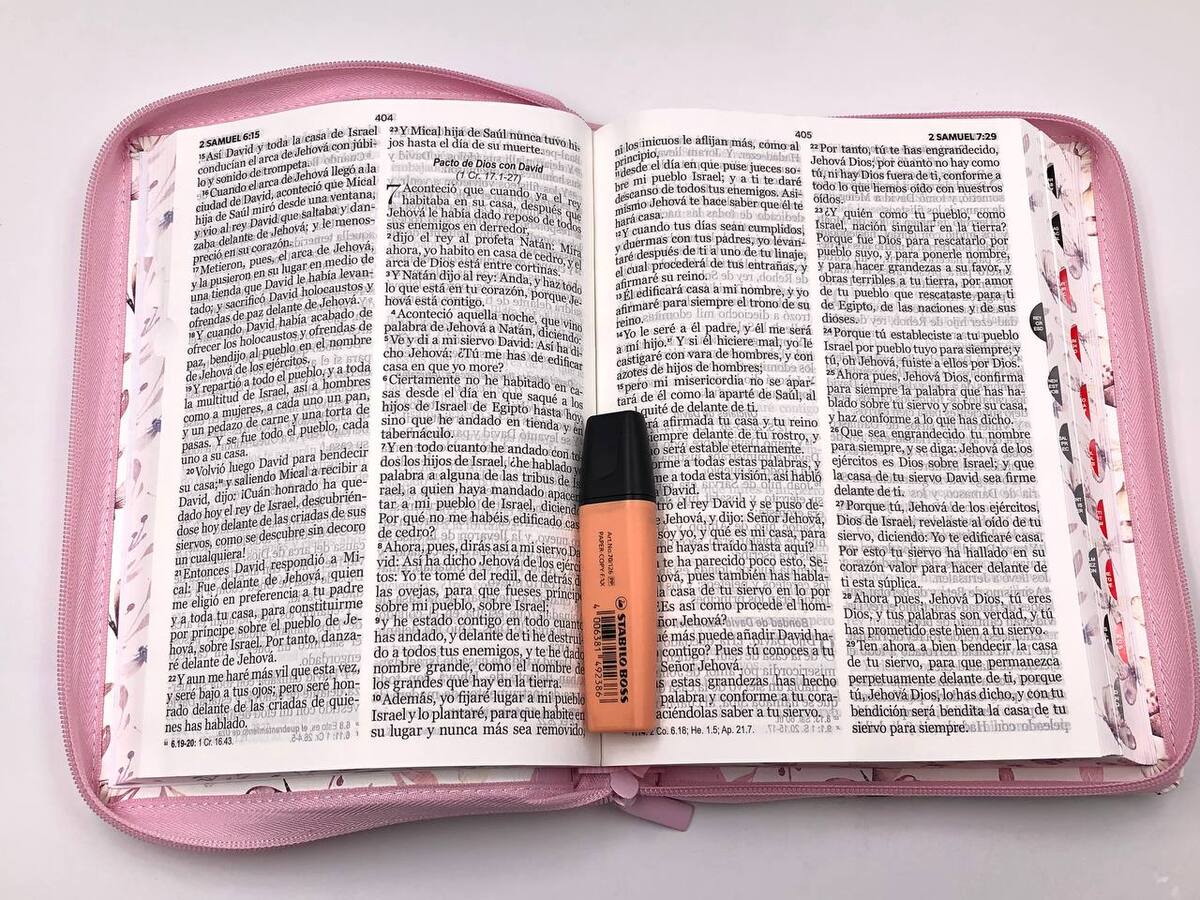 404
2 SAMUEL 6:15
15Así David y toda la casa de Israel
conducían el arca de Jehová con júbi-
lo y sonido de trompeta.
16Cuando el arca de Jehová llegó a la
ciudad de David, aconteció que Mical
hija de Saúl miró desde una ventana,
y vio al rey David que saltaba y dan-
zaba delante de Jehová; y le menos-
preció en su corazón.
17Metieron, pues, el arca de Jehová,
y la pusieron en su lugar en medio de
una tienda que David le había levan-
tado; y sacrificó David holocaustos y
ofrendas de paz delante de Jehová.
18Y cuando David había acabado de
ofrecer los holocaustos y ofrendas de
paz, bendijo al pueblo en el nombre
de Jehová de los ejércitos.
19Y repartió a todo el pueblo, y a toda
la multitud de Israel, así a hombres
como a mujeres, a cada uno un pan,
y un pedazo de carne y una torta de
pasas. Y se fue todo el pueblo, cada
uno a su casa.
20Volvió luego David para bendecir
su casa; y saliendo Mical a recibir a
David, dijo: ¡Cuán honrado ha que-
dado hoy el rey de Israel, descubrién-
dose hoy delante de las criadas de sus
siervos, como se descubre sin decoro
un cualquiera!
21Entonces David respondió a Mi-
cal: Fue delante de Jehová, quien
me eligió en preferencia a tu padre
y a toda tu casa, para constituirme
por príncipe sobre el pueblo de Je-
hová, sobre Israel. Por tanto, danza-
ré delante de Jehová.
22Y aun me haré más vil que esta vez,
y seré bajo a tus ojos; pero seré hon-
rado delante de las criadas de quie-
nes has hablado.
6.19-20: 1 Cr. 16.43.
23Y Mical hija de Saúl nunca tuvo hi-
jos hasta el día de su muerte.
Pacto de Dios con David
(1 Cr. 17.1-27)
7 Aconteció que cuando ya el rey
habitaba en su casa, después que
Jehová le había dado reposo de todos
sus enemigos en derredor,
2dijo el rey al profeta Natán: Mira
ahora, yo habito en casa de cedro, y el
arca de Dios está entre cortinas.
3Y Natán dijo al rey: Anda, y haz todo
lo que está en tu corazón, porque Je-
hová está contigo.
4Aconteció aquella noche, que vino
palabra de Jehová a Natán, diciendo:
5Ve y di a mi siervo David: Así ha di-
cho Jehová: ¿Tú me has de edificar
casa en que yo more?
6Ciertamente no he habitado en ca-
sas desde el día en que saqué a los
hijos de Israel de Egipto hasta hoy,
sino que he andado en tienda y en
tabernáculo.
7Y en todo cuanto he andado con to-
dos los hijos de Israel, ¿he hablado yo
palabra a alguna de las tribus de Is-
rael, a quien haya mandado apacen-
tar a mi pueblo de Israel, diciendo:
Por qué no me habéis edificado casa
de cedro?
8Ahora, pues, dirás así a mi siervo Da-
vid: Así ha dicho Jehová de los ejérci-
tos: Yo te tomé del redil, de detrás de
las ovejas, para que fueses príncipe
sobre mi pueblo, sobre Israel;
9y he estado contigo en todo cuanto
has andado, y delante de ti he destrui-
do a todos tus enemigos, y te he dado
nombre grande, como el nombre de
los grandes que hay en la tierra.
10Además, yo fijaré lugar a mi pueblo
Israel y lo plantaré, para que habite en
su lugar y nunca más sea removido,
405
2 SAMUEL 7:29
ni los inicuos le aflijan más, como al
principio,
11desde el día en que puse jueces so-
bre mi pueblo Israel; y a ti te daré
descanso de todos tus enemigos. Asi-
mismo Jehová te hace saber que él te
hará casa.
12Y cuando tus días sean cumplidos,
y duermas con tus padres, yo levan-
taré después de ti a uno de tu linaje,
el cual procederá de tus entrañas, y
afirmaré su reino.
13Él edificará casa a mi nombre, y yo
afirmaré para siempre el trono de su
reino.
14Yo le seré a él padre, y él me será
a mí hijo. Y si él hiciere mal, yo le
castigaré con vara de hombres, y con
azotes de hijos de hombres;
15pero mi misericordia no se apar-
tará de él como la aparté de Saúl, al
quité de delante de ti.
erá afirmada tu casa y tu reino
iempre delante de tu rostro, y
no será estable eternamente.
orme a todas estas palabras, y
me a toda esta visión, así habló
David.
tró el rey David y se puso de-
Jehová, y dijo: Señor Jehová,
soy yo, y qué es mi casa, para
me hayas traído hasta aquí?
te ha parecido poco esto, Se-
hová, pues también has habla-
casa de tu siervo en lo por
¿Es así como procede el hom-
Señor Jehová?
ué más puede añadir David ha-
contigo? Pues tú conoces a tu
Señor Jehová.
s estas grandezas has hecho
palabra y conforme a tu cora-
aciéndolas saber a tu siervo.
2 Co. 6.18; He. 1.5; Ap. 21.7.
22Por tanto, tú te has engrandecido,
Jehová Dios; por cuanto no hay como
tú, ni hay Dios fuera de ti, conforme a
todo lo que hemos oído con nuestros
oídos.
23¿Y quién como tu pueblo, como
Israel, nación singular en la tierra?
Porque fue Dios para rescatarlo por
pueblo suyo, y para ponerle nombre,
y para hacer grandezas a su favor, y
obras terribles a tu tierra, por amor
de tu pueblo que rescataste para ti
de Egipto, de las naciones y de sus
dioses.
24Porque tú estableciste a tu pueblo
Israel por pueblo tuyo para siempre; y
tú, oh Jehová, fuiste a ellos por Dios.
25Ahora pues, Jehová Dios, confirma
para siempre la palabra que has ha-
blado sobre tu siervo y sobre su casa,
y haz conforme a lo que has dicho.
26Que sea engrandecido tu nombre
para siempre, y se diga: Jehová de los
ejércitos es Dios sobre Israel; y que
la casa de tu siervo David sea firme
delante de ti.
27Porque tú, Jehová de los ejércitos,
Dios de Israel, revelaste al oído de tu
siervo, diciendo: Yo te edificaré casa.
Por esto tu siervo ha hallado en su
corazón valor para hacer delante de
ti esta súplica.
28Ahora pues, Jehová Dios, tú eres
Dios, y tus palabras son verdad, y tú
has prometido este bien a tu siervo.
29Ten ahora a bien bendecir la casa
de tu siervo, para que permanezca
perpetuamente delante de ti, porque
tú, Jehová Dios, lo has dicho, y con tu
bendición será bendita la casa de tu
siervo para siempre.
Art.No.70/126
STABILO BOSS
4 006381 492386